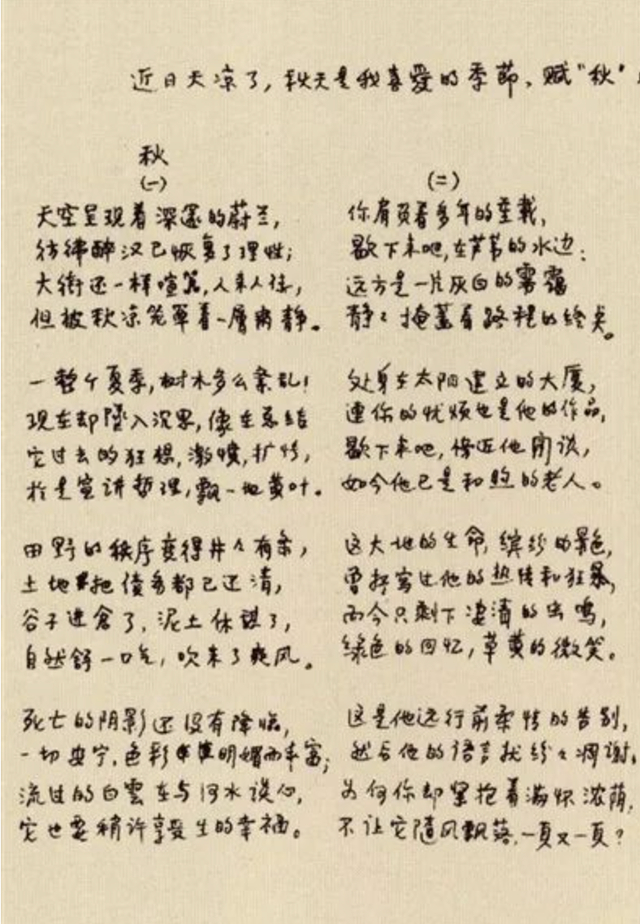 近日天凉了,秋天是我喜爱的季節、赋"秋"
秋
(一)
天空呈现着深邃的蔚兰,
彷彿醉汉已恢复了理性;
大街还一样喧嚣,人来人往,
但被秋凉笼罩着一層肃静。
一整个夏季,树木多么紊乱!
现在却墜入沉思,像在总结
它过去的狂想,激愤,扩张,
於是宣讲哲理,飘一地黄叶。
田野的秩序变得井々有条,
土地把债务都已还清,
谷子进倉了,泥土休憩了,
自然舒一口气,吹来了爽风。
死亡的阴影还没有降临,
一切安宁,色彩明媚而丰富;
流过的白雲在与河水谈心,
它也要稍许享受生的幸福。
(二)
你肩负着多年的重载,
歇下来吧,在芦苇的水边:
远方是一片灰白的雾靄
静々掩蓋着路程的终点。
处身在太阳建立的大厦,
連你的忧烦也是他的作品,
歇下来吧,傍近他闲谈,
如今他已是和煦的老人。
这大地的生命,缤纷的景色,
曾抒写过他的热情和狂暴,
而今只剩下凄清的虫鸣,
绿色的回忆,草黄的微笑。
这是他远行前柔情的告别,
然后他的语言就纷々凋谢,
为何你却紧抱着满怀浓荫,
不让它随风飘落,一頁又一頁?